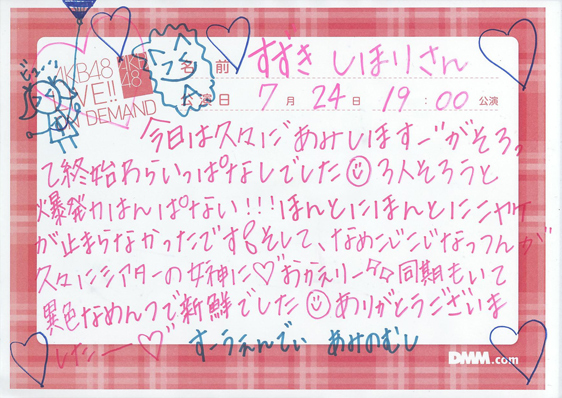 ビューン
AKB48
LIVE!!
ON DEMAND
AKB
48
名前 すずき しほりさん
公演日 7月24日 19:00 公演
今日は久々に"あみしほすー"がそろっ
て終始わらいっぱなしでした☺3人そろうと
爆発力はんぱない!!!ほんとにほんとにニヤケ
が止まらなかったです そして、なめこじこじなっつんが
久々にシアターの女神に♡おかえりー 同期もいて
異色なめんつで新鮮でした☺ありがとうございま
したーー♡ すーうぇんでぃ あみのむし
DMM.com